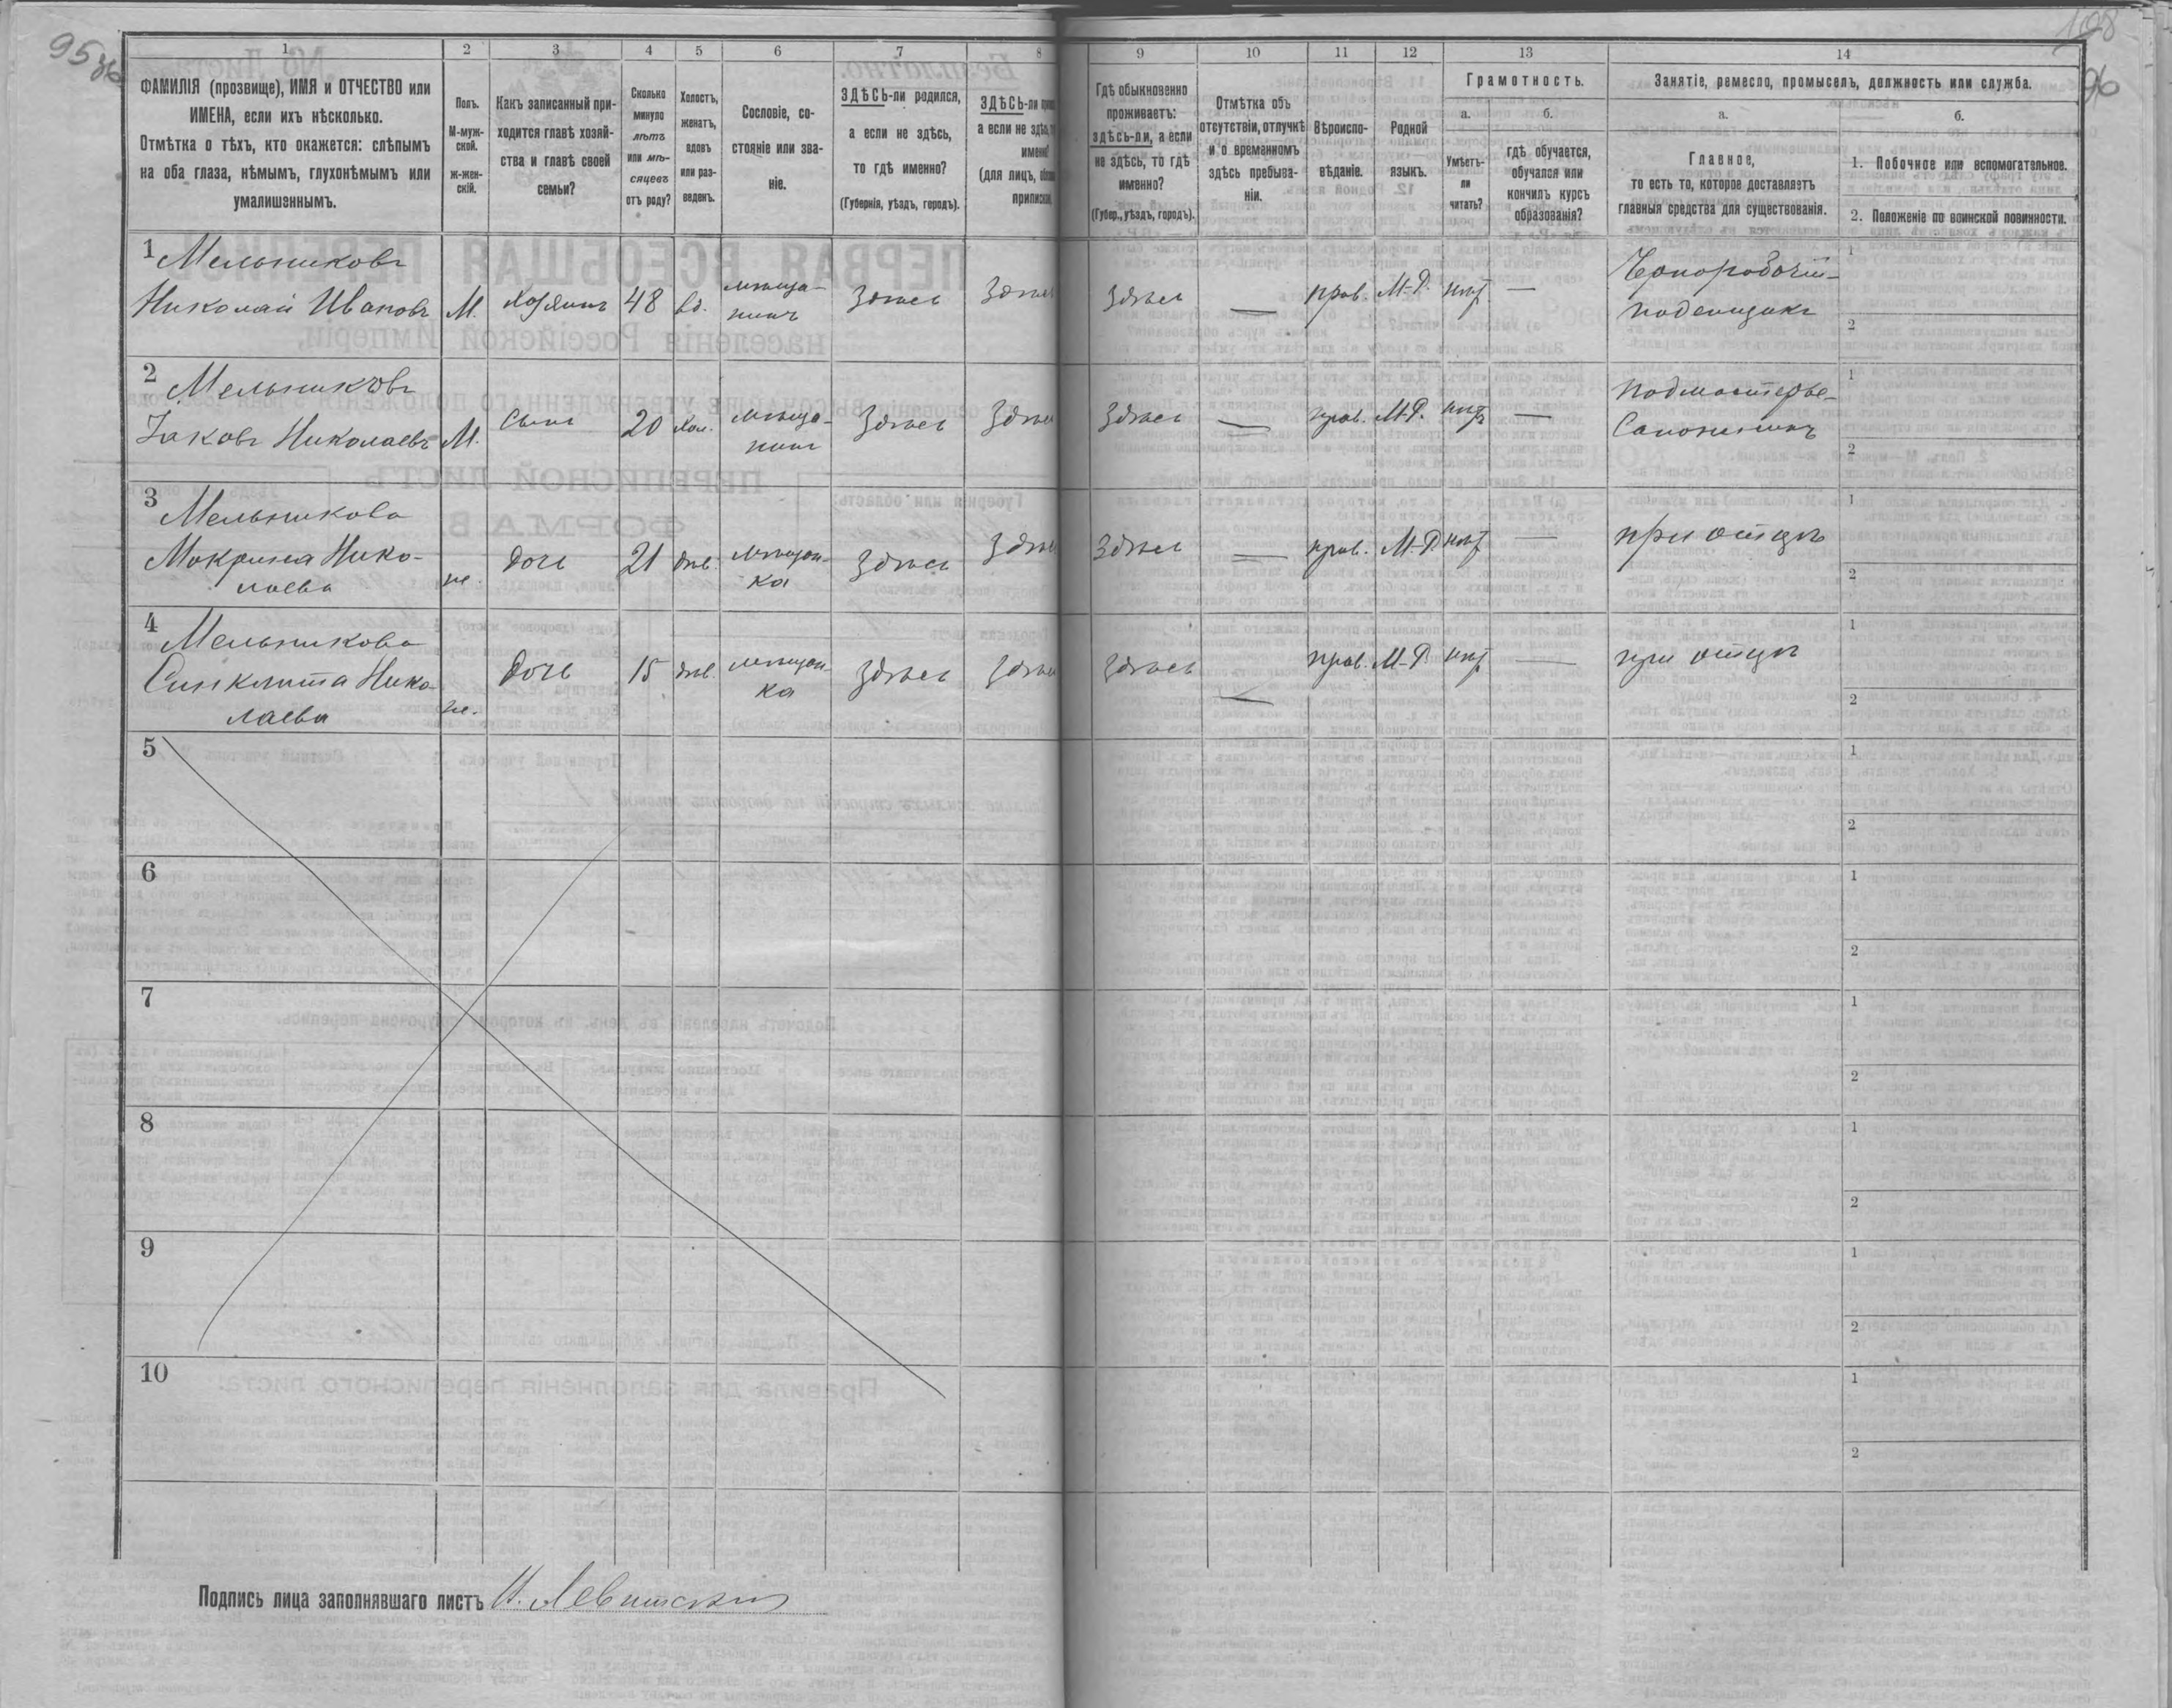 95 об
198
96
1
2
3
4
5
6
7
8
9
10
11
12
13
14
ФАМИЛІЯ (прозвище), ИМЯ и ОТЧЕСТВО или
ИМЕНА, если ихъ нѣсколько.
Отмѣтка о тѣхъ, кто окажется: слѣпымъ
на оба глаза, нѣмымъ, глухонѣмымъ или
умалишеннымъ.
Полъ.
М-муж-
ской.
ж-жен-
скій.
Какъ записанный при-
ходится главѣ хозяй-
ства и главѣ своей
семьи?
Сколько
минуло
лѣтъ
или мѣ-
сяцевъ
отъ роду?
Холостъ,
женатъ,
вдовъ
или раз-
веденъ.
Сословіе, со-
стояніе или зва-
ніе.
ЗДѢСЬ-ли родился,
а если не здѣсь,
то гдѣ именно?
(Губернія, уѣздъ, городъ).
ЗДѢСЬ-ли
а если не здѣсь,
именно?
(для лицъ,
приписки
Гдѣ обыкновенно
проживаетъ:
здѣсь-ли, а если
не здѣсь, то гдѣ
именно?
(Губер., уѣздъ, городъ).
Отмѣтка объ
отсутствіи, отлучкѣ
и о временномъ
здѣсь пребыва-
ніи.
Вѣроиспо-
вѣданіе.
Родной
языкъ.
Грамотность.
а.
б.
Умѣетъ-
ли
читать?
гдѣ обучается,
обучался или
кончилъ курсъ
образованія?
Занятіе, ремесло, промыселъ, должность или служба.
а.
б.
Главное,
то есть то, которое доставляетъ
главныя средства для существованія.
1. Побочное или вспомогательное.
2. Положеніе по воинской повинности.
1 Мельниковъ
Николай Ивановъ М. хозяинъ 48 вд. мѣща-
нинъ Здѣсь Здѣсь Здѣсь — прав. М-Р. нѣт — Чернорабочій-
поденщикъ
1
2
2 Мельниковъ
Іаковъ Николаевъ М. Сынъ 20 хол. мѣща-
нинъ Здѣсь Здѣсь Здѣсь — прав. М-Р. нѣт — Подмастерье-
Сапожникъ
1
2
3 Мельникова
Макрина Нико-
лаева ж. дочь 21 дѣв. мѣщан-
ка Здѣсь Здѣсь Здѣсь — прав. М-Р нѣт — при отцѣ
1
2
4 Мельникова
Синклита Нико-
лаева ж. дочь 15 дѣв. мѣщан-
ка Здѣсь Здѣсь Здѣсь — прав. М-Р нѣт — при отцѣ
1
2
5
1
2
6
1
2
7
1
2
8
1
2
9
1
2
10
1
2
Подпись лица заполнявшаго листъ Н. Левитскій